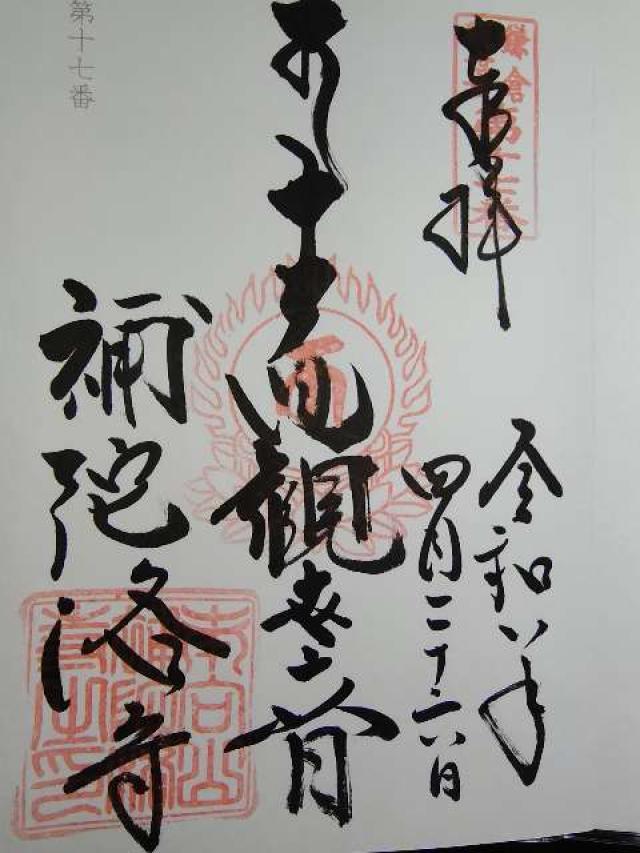 奉拝
令和八年
四月二十六日
十一面観世音
補陀洛寺
第十七番
鎌倉
南向山